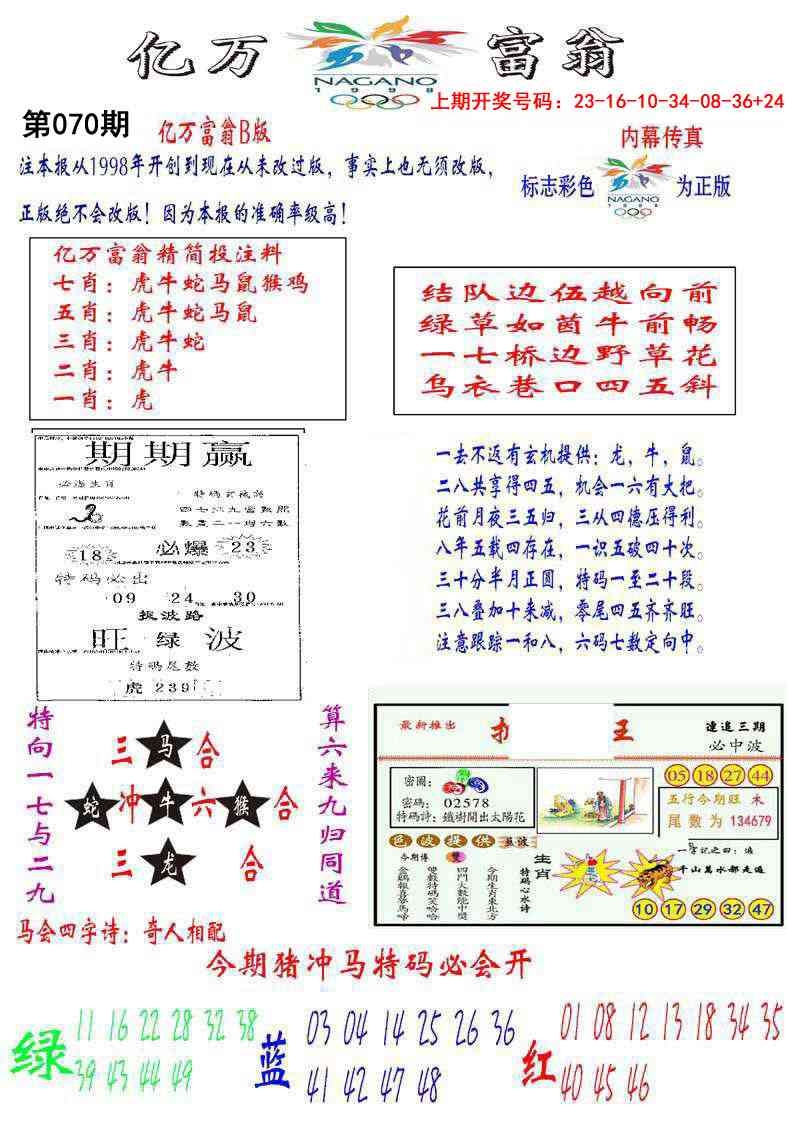 亿万富翁
NAGANO
1998
上期开奖号码：23-16-10-34-08-36+24
第070期
亿万富翁B版
内幕传真
注本报从1998年开创到现在从未改过版，事实上也无须改版，
正版绝不会改版！因为本报的准确率级高！
标志彩色
NAGANO
1998
为正版
亿万富翁精简投注料
七肖：虎牛蛇马鼠猴鸡
五肖：虎牛蛇马鼠
三肖：虎牛蛇
二肖：虎牛
一肖：虎
结队边伍越向前
绿草如茵牛前畅
一七桥边野草花
乌衣巷口四五斜
期期赢
必爆
18
23
特码必出
09 24 30
捉波路
旺绿波
特码尾数
虎239
一去不返有玄机提供：龙，牛，鼠。
二八共享得四五，机会一六有大把。
花前月夜三五归，三从四德压得利。
八年五载四存在，一识五破四十次。
三十分半月正圆，特码一至二十段。
三八叠加十来减，零尾四五齐齐旺。
注意跟踪一和八，六码七数定向中。
特向一七与二九
三马合
蛇冲牛六猴合
三龙合
算六来九归同道
最新推出
王
连追三期
必中波
05 18 27 44
密圈：
密碼：02578
特碼詩：鐵樹開出太陽花
五行今期旺
尾數为 134679
色波提供
藍波
今期傳
雙
金鷄報喜
雙數特碼笑哈哈
四門大數能中獎
今期生肖東北方
生肖
特码心水诗
千山萬水都走遍
10 17 29 32 47
马会四字诗：奇人相配
今期猪冲马特码必会开
绿
11 16 22 28 32 38
39 43 44 49
蓝
03 04 14 25 26 36
41 42 47 48
红
01 08 12 13 18 34 35
40 45 46